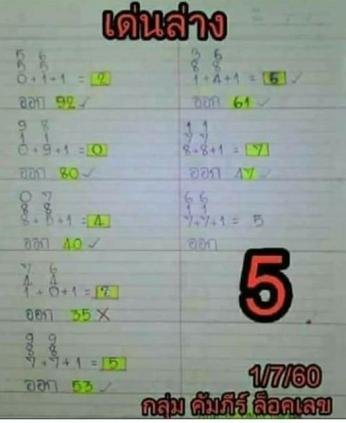 เด่นล่าง
5 6
5 5
0+1+1 = 2
ออก 92 ✓
9 8
1 1
0+9+1 = 0
ออก 80 ✓
0 7
8 8
8+5+1 = 4
ออก 40 ✓
7 6
4 4
1+0+1 = 2
ออก 35 ×
9 9
8 8
7+7+1 = 5
ออก 53 ✓
3 6
8 8
1+4+1 = 6
ออก 61 ✓
1 1
7 7
8+8+1 = 7
ออก 47 ✓
6 6
1 1
7+7+1 = 5
ออก
5
1/7/60
กลุ่ม คัมภีร์ ล็อคเลข